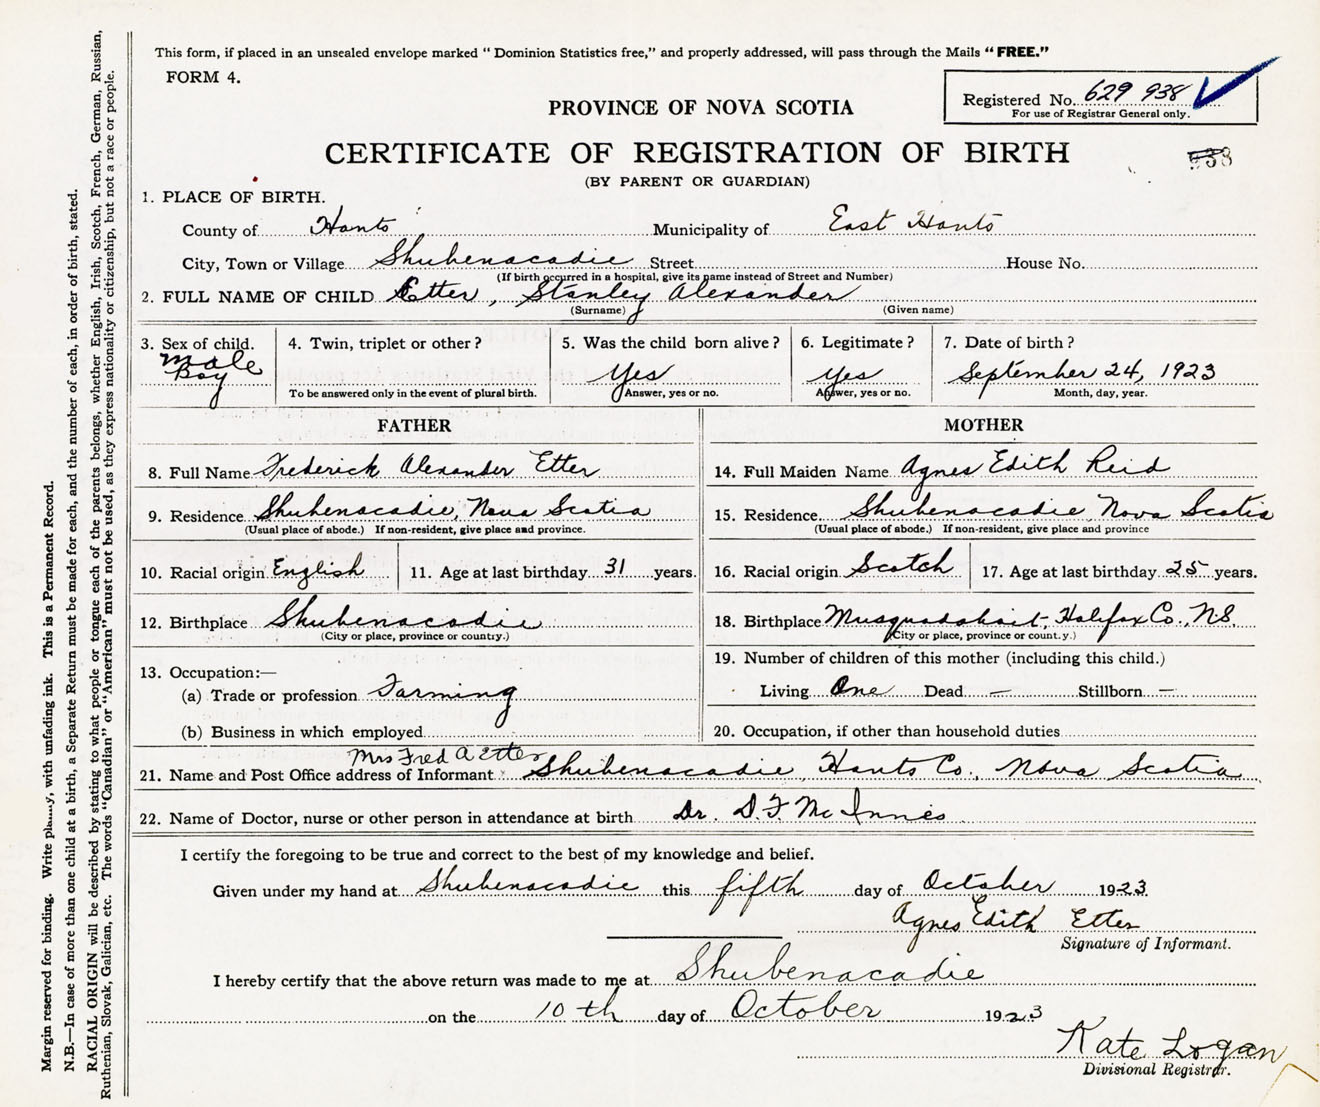 This form, if placed in an unsealed envelope marked "Dominion Statistics free," and properly addressed, will pass through the Mails "FREE."
FORM 4.
Registered No. 629 938
For use of Registrar General only.
PROVINCE OF NOVA SCOTIA
CERTIFICATE OF REGISTRATION OF BIRTH
(BY PARENT OR GUARDIAN)
1. PLACE OF BIRTH.
County of Hants Municipality of East Hants
City, Town or Village Shubenacadie Street House No.
(If birth occurred in a hospital, give its name instead of Street and Number)
2. FULL NAME OF CHILD Etter, Stanley Alexander
(Surname) (Given name)
3. Sex of child. 4. Twin, triplet or other? 5. Was the child born alive? 6. Legitimate? 7. Date of birth?
Male
Boy Yes Yes September 24, 1923
To be answered only in the event of plural birth. Answer, yes or no. Answer, yes or no. Month, day, year.
FATHER MOTHER
8. Full Name Frederick Alexander Etter 14. Full Maiden Name Agnes Edith Reid
9. Residence Shubenacadie, Nova Scotia 15. Residence Shubenacadie Nova Scotia
(Usual place of abode.) If non-resident, give place and province. (Usual place of abode.) If non-resident, give place and province
10. Racial origin English 11. Age at last birthday 31 years. 16. Racial origin Scotch 17. Age at last birthday 25 years.
12. Birthplace Shubenacadie 18. Birthplace Musquodoboit, Halifax Co., N.S.
(City or place, province or country.) (City or place, province or count.y.)
13. Occupation:— 19. Number of children of this mother (including this child.)
(a) Trade or profession Farming Living One Dead — Stillborn —
(b) Business in which employed 20. Occupation, if other than household duties
Mrs Fred A Etter
21. Name and Post Office address of Informant Shubenacadie, Hants Co., Nova Scotia
22. Name of Doctor, nurse or other person in attendance at birth Dr. D. F. McInnes
I certify the foregoing to be true and correct to the best of my knowledge and belief.
Given under my hand at Shubenacadie this fifth day of October 1923.
Agnes Edith Etter
Signature of Informant.
I hereby certify that the above return was made to me at Shubenacadie
on the 10th day of October 1923
Kate Logan
Divisional Registrar.
Margin reserved for binding. Write with unfading ink. This is a Permanent Record.
N.B.—In case of more than one child at a birth, a Separate Return must be made for each, and the number of each, in order of birth, stated.
RACIAL ORIGIN will be described by stating to what people or tongue each of the parents belongs, whether English, Irish, Scotch, French, German, Russian,
Ruthenian, Slovak, Galician, etc. The words "Canadian" or "American" must not be used, as they express nationality or citizenship, but not a race or people.